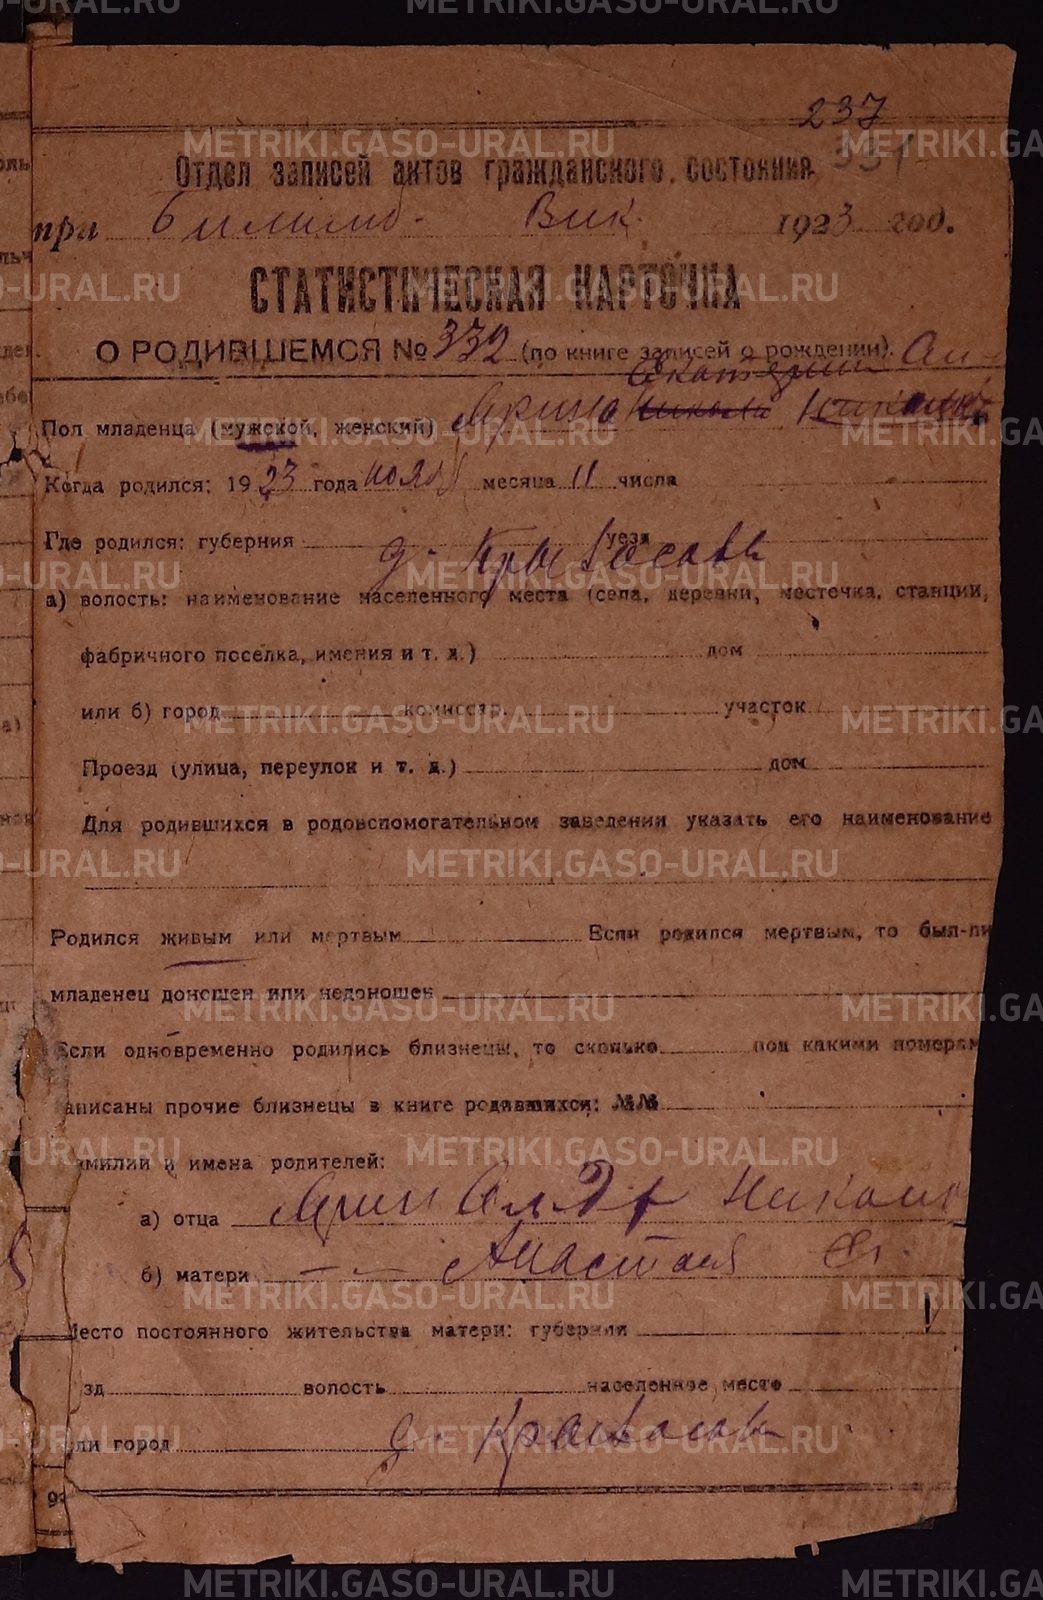 237
331
Отдел записей актов гражданского состояния
при Билимб. Вик. 1923 год.
СТАТИСТИЧЕСКАЯ КАРТОЧКА
О РОДИВШЕМСЯ № 332 (по книге записей о рождении).
Пол младенца (мужской, женский)
Когда родился: 1923 года нояб месяца 11 числа
Где родился: губерния уезд
а) волость: наименование населенного места (села, деревни, месточка, станции,
фабричного поселка, имения и т. д.) дом
или б) город комиссар. участок
Проезд (улица, переулок и т. д.) дом
Для родившихся в родовспомогательном заведении указать его наименование
Родился живым или мертвым Если родился мертвым, то был-ли
младенец доношен или недоношен
Если одновременно родились близнецы, то сколько под какими номерам
записаны прочие близнецы в книге родившихся: №№
милии и имена родителей:
а) отца
б) матери Анастасия
Место постоянного жительства матери: губернии
зд волость населенное место
ли город д.
METRIKI.GASO-URAL.RU